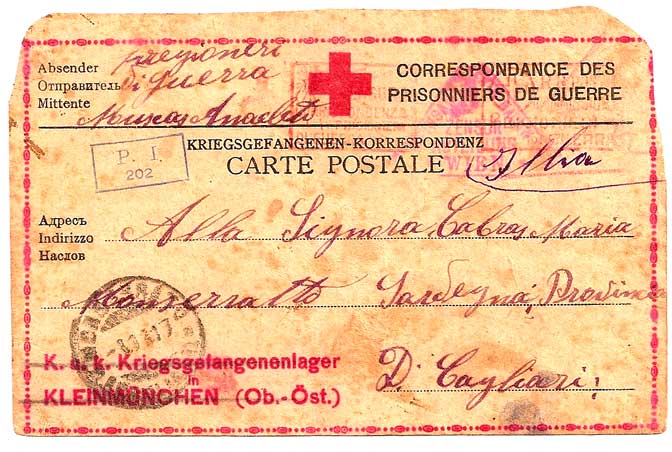 Absender
Отправитель
Mittente
Pregioneri
di Guerra
Muscas Anacleto
CORRESPONDANCE DES
PRISONNIERS DE GUERRE
P. I.
202
KRIEGSGEFANGENEN-KORRESPONDENZ
CARTE POSTALE
Адресъ
Indirizzo
Наслов
Alla Signora Cabras Maria
Monserratto Sardegna, Provincia
D Cagliari;
K. u. k. Kriegsgefangenenlager
in
KLEINMÜNCHEN (Ob.-Öst.)